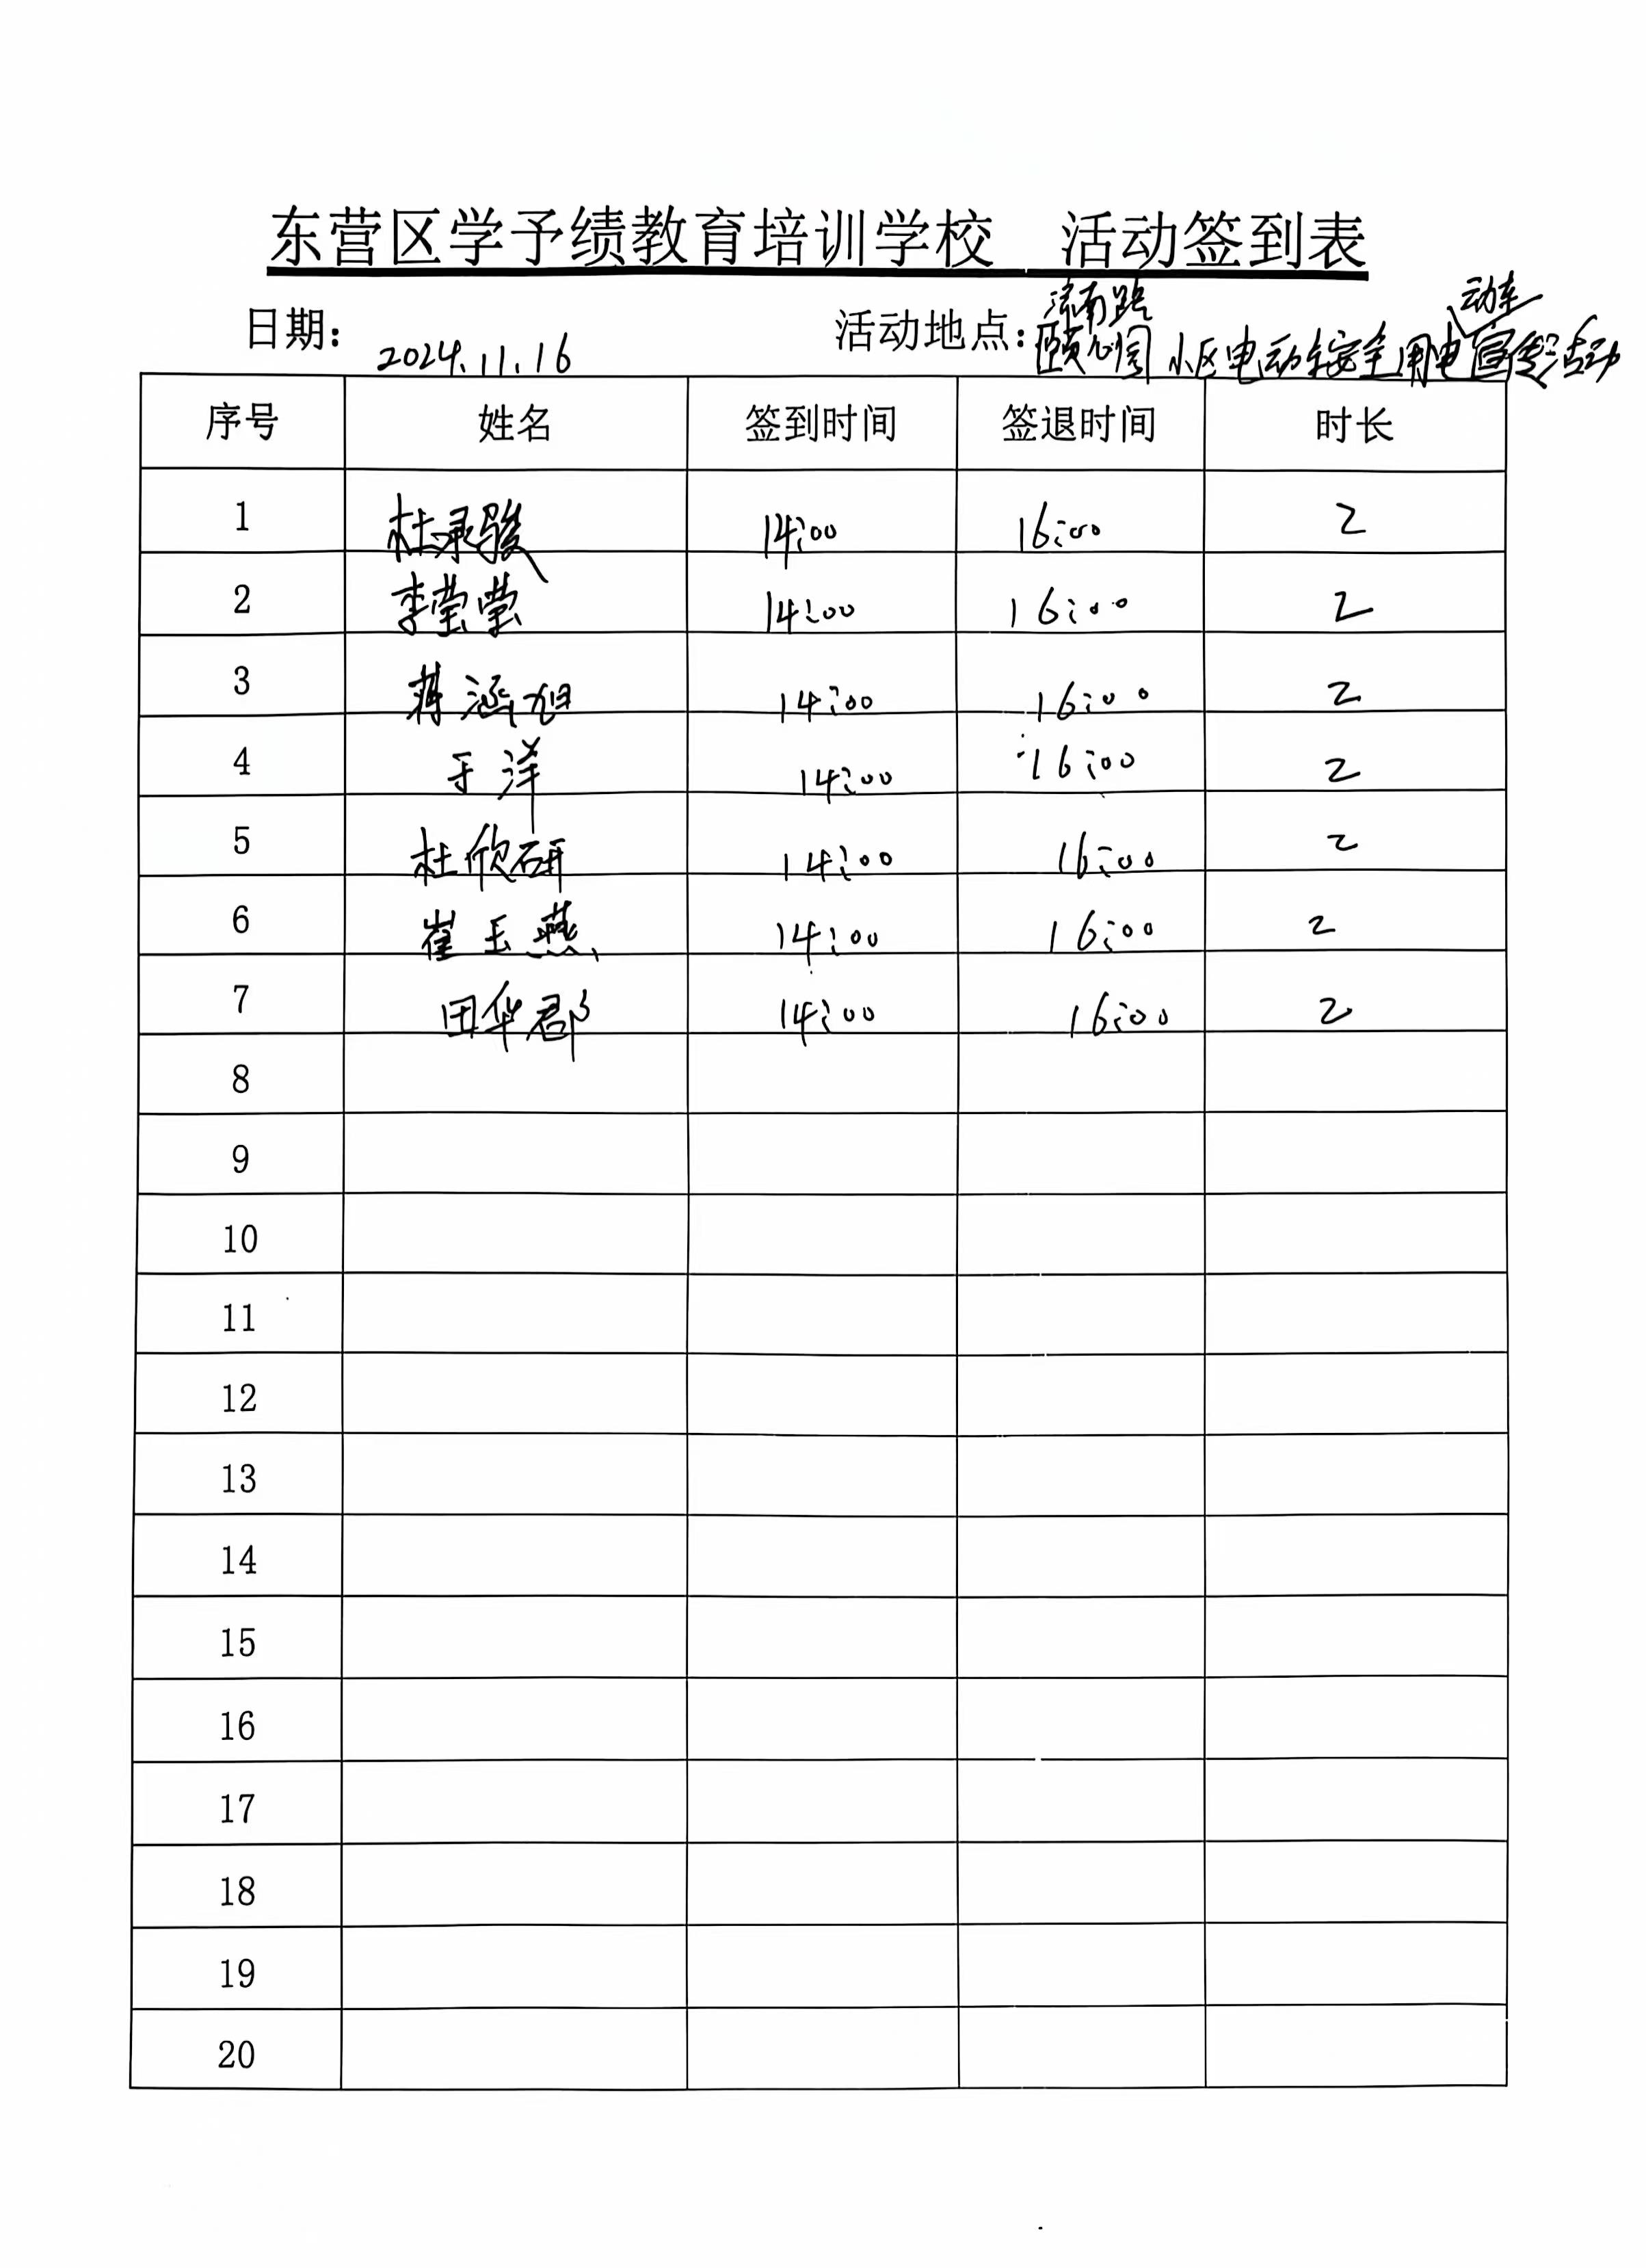 东营区学予绩教育培训学校 活动签到表
日期: 2024.11.16 活动地点: 济南路
颐心阁小区电动车安全用电动车宣传活动
序号 姓名 签到时间 签退时间 时长
1 杜承骏 14:00 16:00 2
2 李莹莹 14:00 16:00 2
3 蒋涵旭 14:00 16:00 2
4 于洋 14:00 16:00 2
5 杜欣研 14:00 16:00 2
6 崔玉燕 14:00 16:00 2
7 田华郡 14:00 16:00 2
8
9
10
11
12
13
14
15
16
17
18
19
20